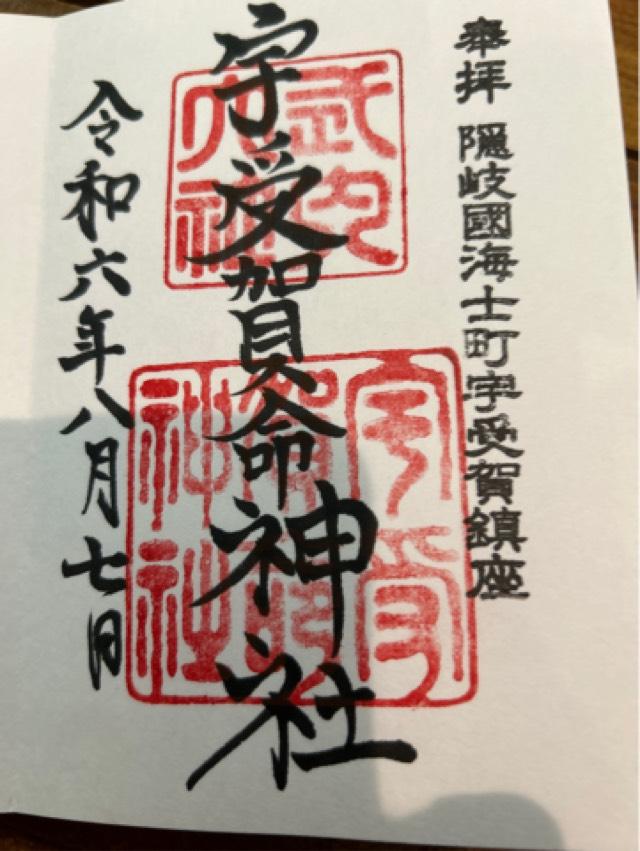 奉拝 隠岐國海士町宇受賀鎮座
宇受賀命神社
武内
大神
宇受
賀命
神社
令和六年八月七日